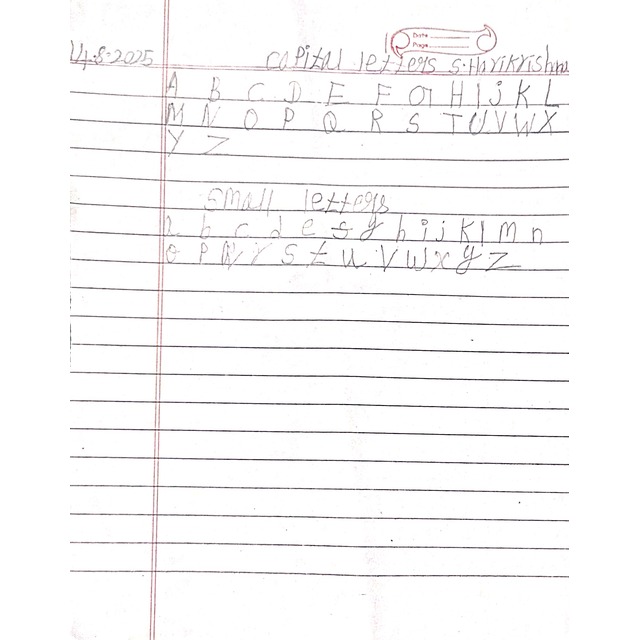 Date
Page
14-8-2025 capital letters S.Harikrishna
A B C D E F G H I j K L
M N O P Q R S T U V W X
Y Z
small letters
a b c d e f g h i j k l m n
o p q r s t u v w x y z